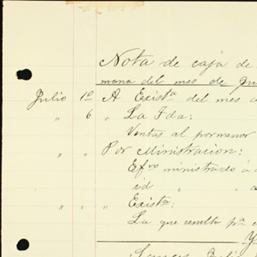 Nota de caja de
mana del mes de Ju
Julio 1º A Existª del mes a
" 6 " La Fda:
Ventas al pormenor
" " Por Ministracion:
Efvo ministrado á
id " "
" " " Existª:
La que resulta pª